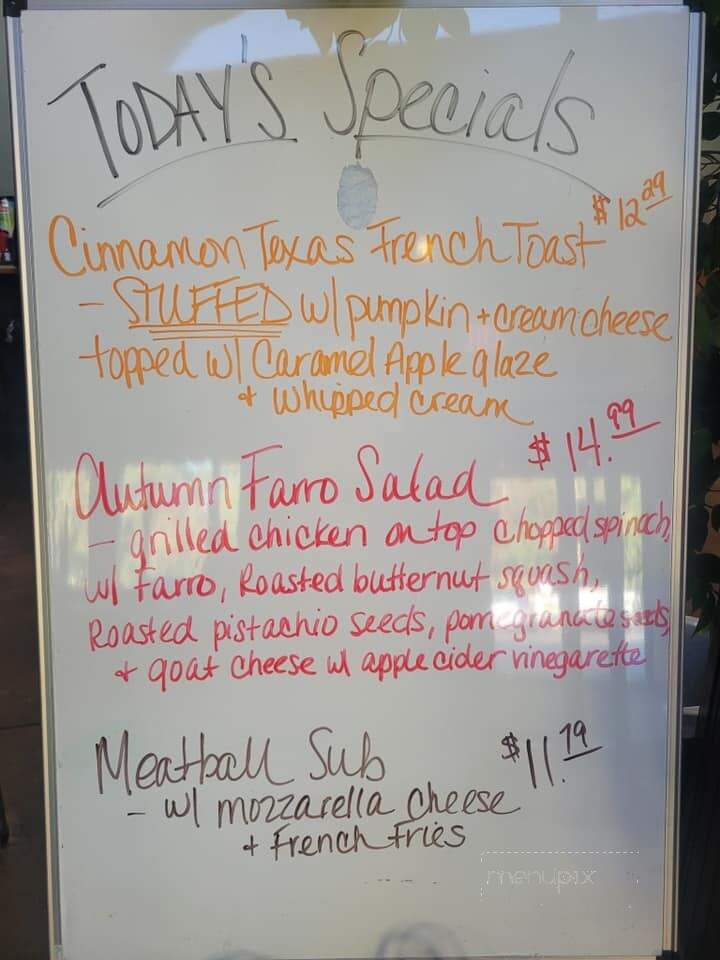 TODAY'S Specials
Cinnamon Texas French Toast $12 29
- STUFFED w/ pumpkin + cream cheese
topped w/ Caramel Apple glaze
+ whipped cream
Autumn Farro Salad $14.99
- grilled chicken on top chopped spinach,
w/ Farro, Roasted butternut squash,
Roasted pistachio seeds, pomegranate seeds,
+ goat cheese w/ apple cider vinegarette
Meatball Sub $11.79
- w/ mozzarella cheese
+ French Fries
menupix